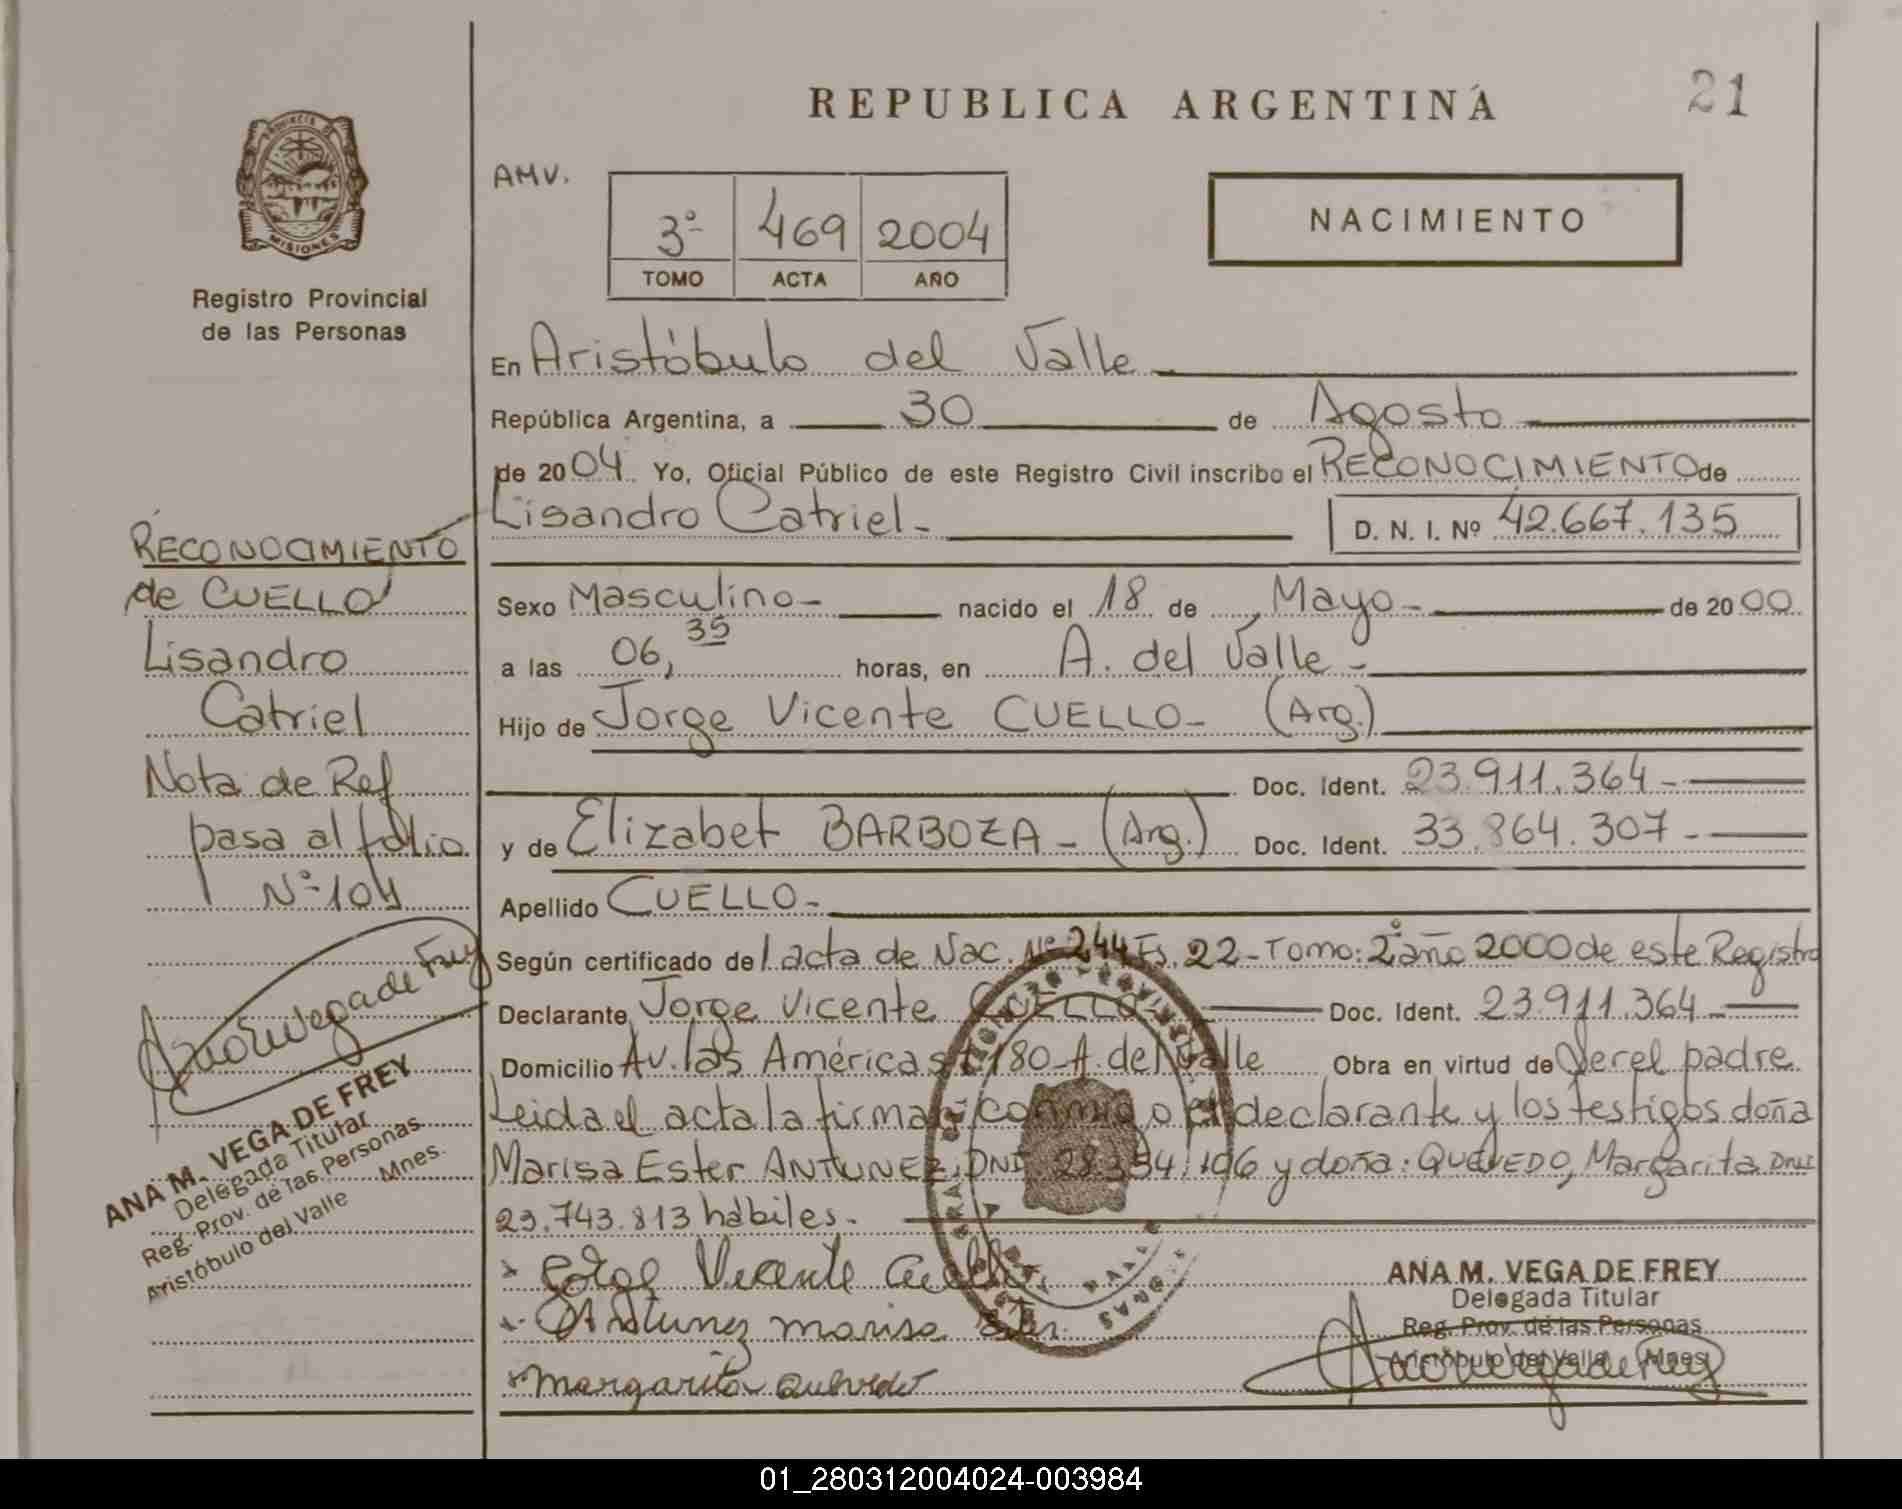 REPUBLICA ARGENTINA
21
PROVINCIA DE
MISIONES
Registro Provincial
de las Personas
AMV.
3º 469 2004
TOMO ACTA AÑO
NACIMIENTO
En Aristóbulo del Valle
República Argentina, a 30 de Agosto
de 2004. Yo, Oficial Público de este Registro Civil inscribo el RECONOCIMIENTO de
Lisandro Catriel- D. N. I. Nº 42.667.135
Sexo Masculino- nacido el 18 de Mayo- de 2000
a las 06,35 horas, en A. del Valle-
Hijo de Jorge Vicente CUELLO- (Arg.)
Doc. Ident. 23.911.364-
y de Elizabet BARBOZA- (Arg.) Doc. Ident. 33.864.307-
Apellido CUELLO-
Según certificado del acta de Nac. Nº 244 Fs. 22-Tomo: 2º año 2000 de este Registro
Declarante Jorge Vicente CUELLO Doc. Ident. 23.911.364-
Domicilio Av. las Américas 1180-A. del Valle Obra en virtud de ser el padre
Leida el acta la firman conmigo el declarante y los testigos doña
Marisa Ester ANTUNEZ, DNI 28.354.106 y doña: QUEVEDO, Margarita DNI
23.743.813 hábiles.-
Jorge Vicente Cuello
Antunez marisa Ester.
margarita Quevedo
ANA M. VEGA DE FREY
Delegada Titular
Reg. Prov. de las Personas
Aristóbulo del Valle Mnes.
RECONOCIMIENTO
de CUELLO
Lisandro
Catriel
Nota de Ref
pasa al folio
Nº 104
Ana M Vega de Frey
ANA M. VEGA DE FREY
Delegada Titular
Reg. Prov. de las Personas
Aristóbulo del Valle Mnes.
01_280312004024-003984